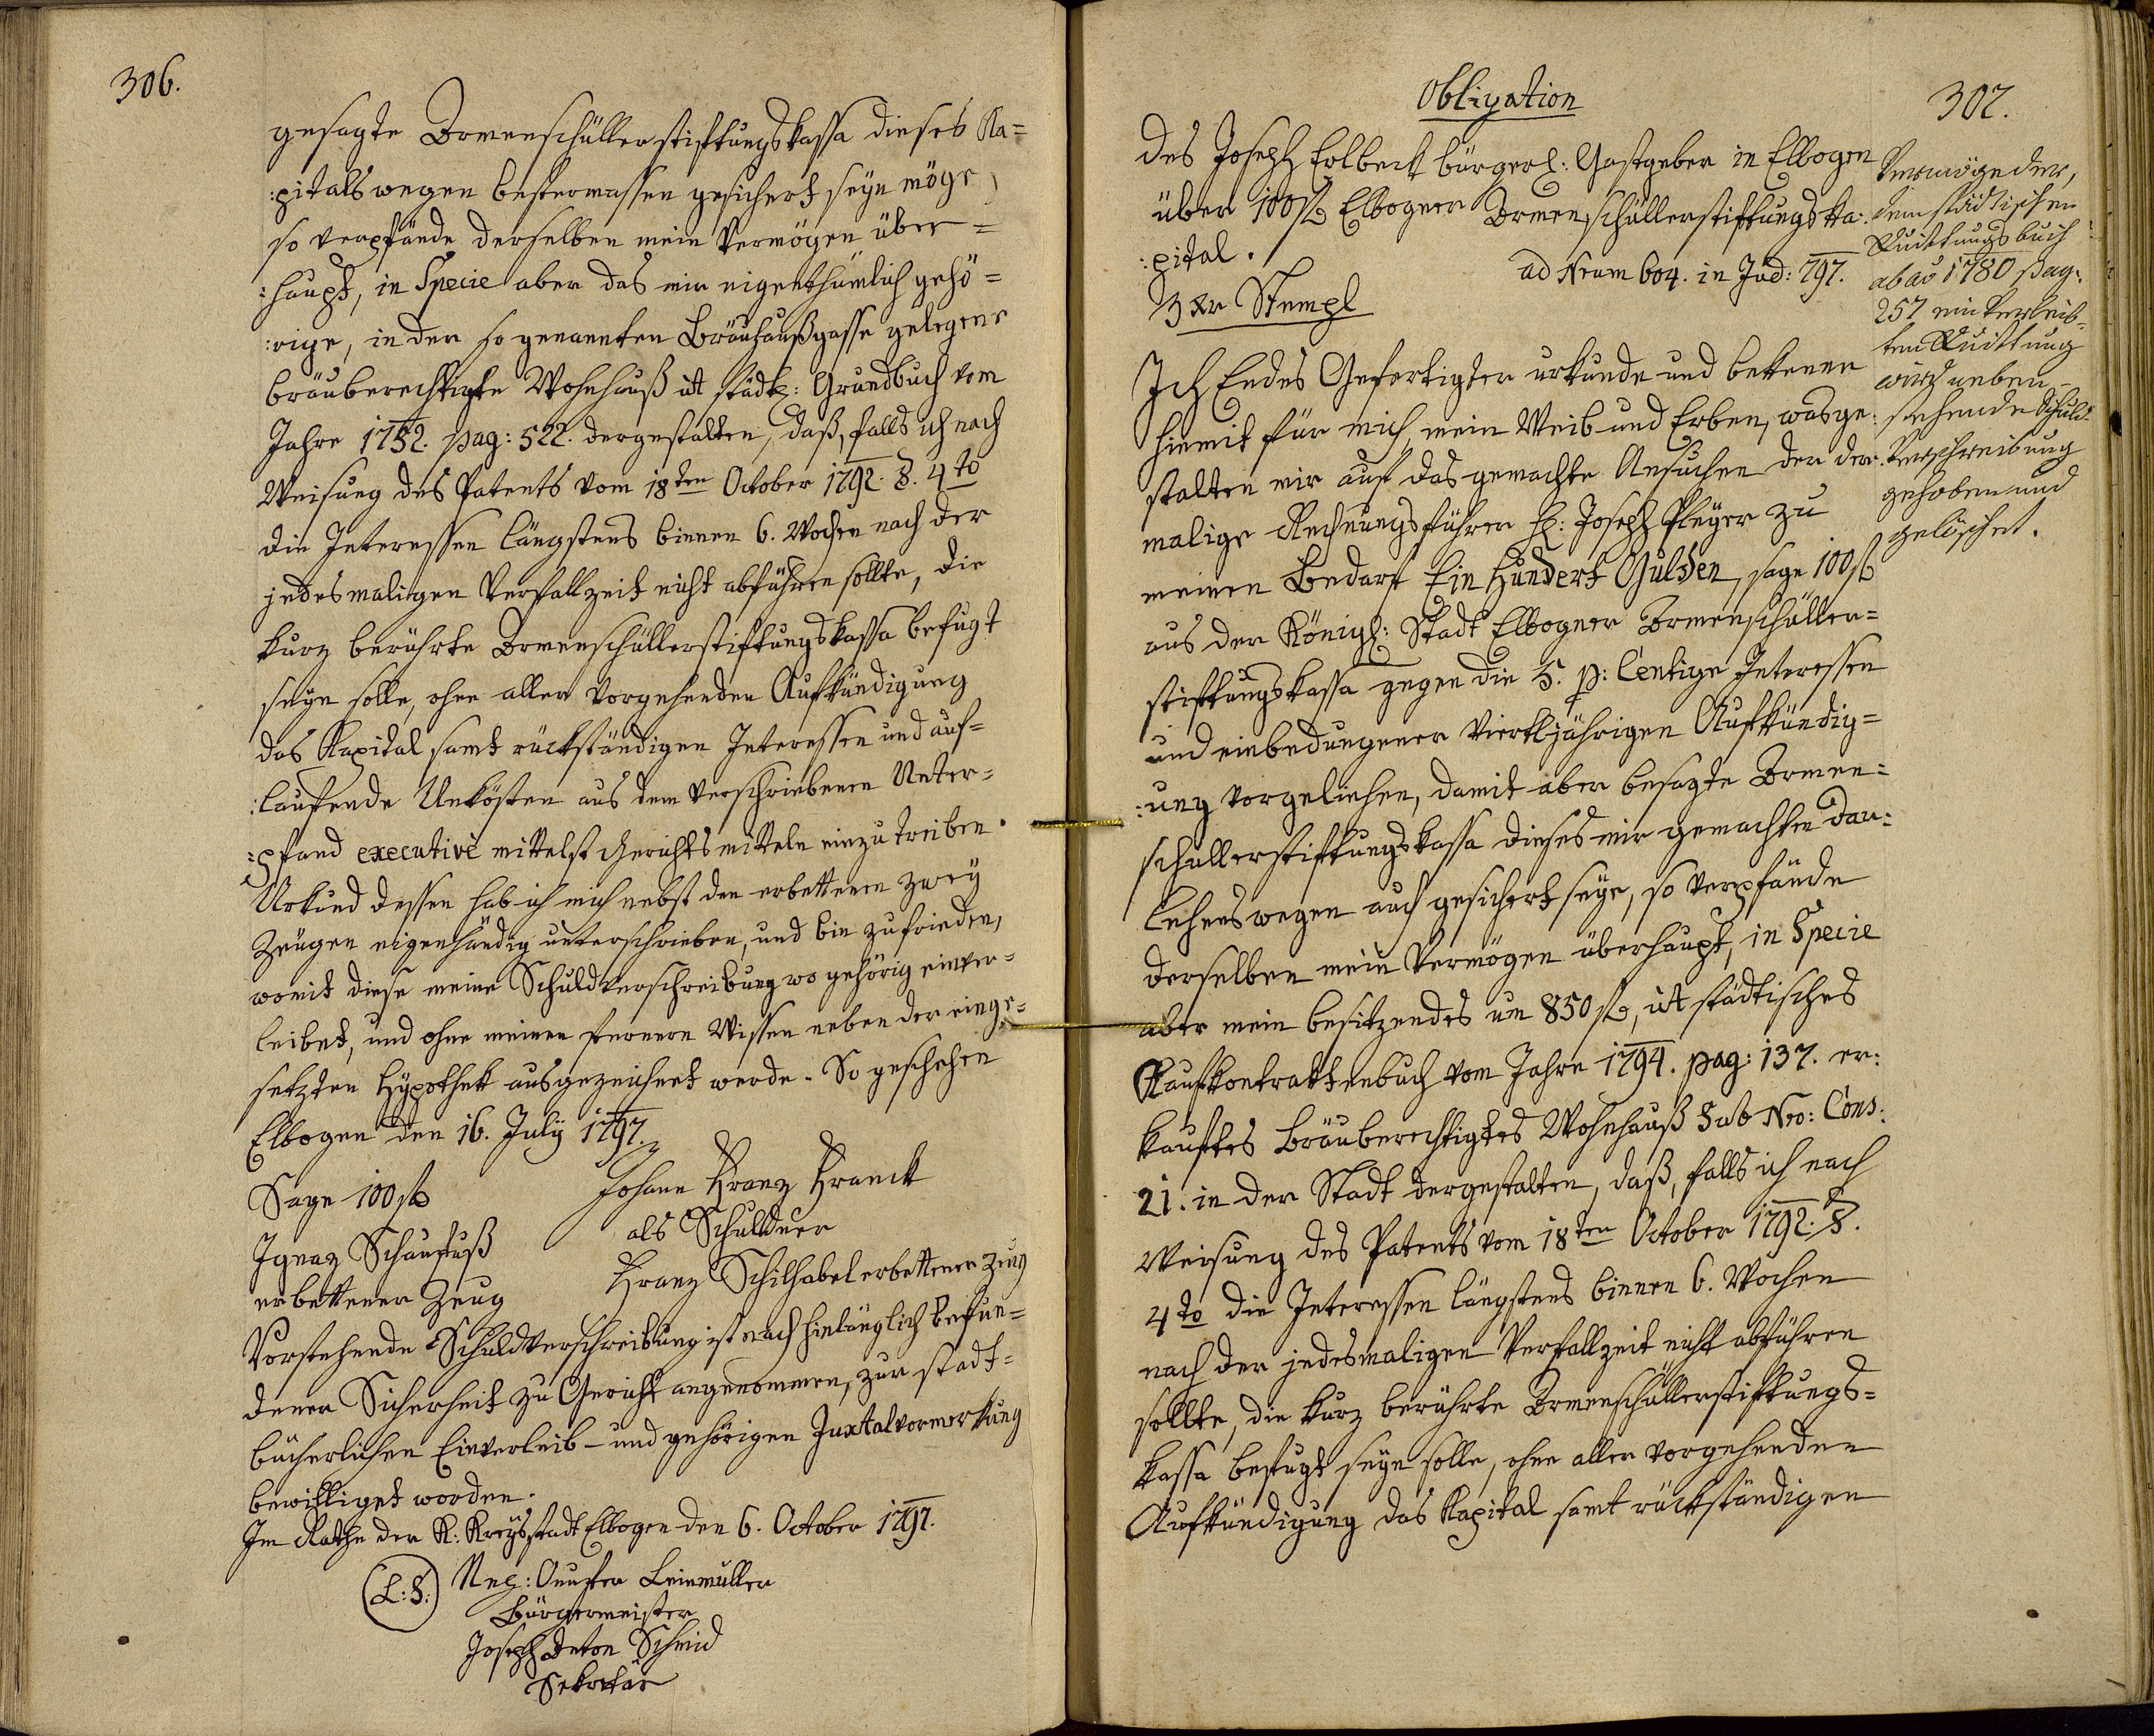 306.
gesagte Armenschüllerstiftungskassa dieses Ka=
:pitals wegen bestermassen gesichert seyn möge,
so verpfände derselben mein Vermögen über=
:haupt, in Specie aber das mir eigenthümlich gehö=
:rige, in der so genannten Bräuhaußgasse gelegene
bräuberechtigte Wohnhauß itt städt: Grundbuch vom
Jahre 1752. pag: 522. dergestalten, daß, falls ich nach
Weisung des Patents vom 18ten October 1792. §. 4to
die Interessen längstens binnen 6. Wochen nach der
jedesmaligen Verfallzeit nicht abführen sollte, die
kurz berührte Armenschüllerstiftungskassa befugt
seyn solle, ohne aller vorgehenden Aufkündigung
das Kapital samt rückständigen Interessen und auf=
:laufende Unkösten aus dem verschriebenen Unter=
:pfand executivè mittelst Gerichtsmitteln einzutreiben.
Urkund dessen hab ich mich nebst den erbettenen zwey
Zeugen eigenhändig unterschrieben, und bin zufrieden,
womit diese meine Schuldverschreibung wo gehörig einver=
leibet, und ohne meinen fernern Wissen neben der einge=
setzten Hypothek ausgezeichnet werde. So geschehen
Elbogen den 16. July 1797.
Sage 100 fl Johann Franz Franck
als Schuldner
Ignaz Schaufuß
erbettener Zeug Franz Schilhabel erbettener Zeug
Vorstehende Schuldverschreibung ist nach hinlänglich befun=
dener Sicherheit zu Gericht angenommen, zur stadt=
bücherlichen Einverleib- und gehörigen Juxtalvormerkung
bewilliget worden.
Im Rathe der K: Kreysstadt Elbogen den 6. October 1797.
(L: S:) Leinmüller
Bürgermeister
Joseph Anton Schmid
Sekretär
Obligation
307.
des Joseph Erlbeck bürgerl: Gastgeber in Elbogen
über 100 fl Elbogner Armenschüllerstiftungska:
:pital.
ad Nrum 604. in Jud: 797.
3 Xr Stempl
Ich Endes Gefertigter urkunde und bekenne
hiemit für mich, mein Weib- und Erben, wasge:
stalten mir auf das gemachte Ansuchen der der:
malige Rechnungsführer H: Joseph Pleyer zu
meinen Bedarf Ein Hundert Gulden, sage 100 fl
aus der Königl: Stadt Elbogner Armenschüller=
stiftungskassa gegen die 5. p: Centige Interessen
und einbedungener vierteljährigen Aufkündig=
:ung vorgeliehen, damit aber besagte Armen=
schüllerstiftungskassa dieses mir gemachten Dar:
lehens wegen auch gesichert seye, so verpfände
derselben mein Vermögen überhaupt, in Specie
aber mein besitzendes um 850 fl, itt städtisches
Kaufkontraktenbuch vom Jahre 1794. pag: 137. er:
kauftes bräuberechtigtes Wohnhauß Sub Nro: Cons:
21. in der Stadt dergestalten, daß, falls ich nach
Weisung des Patents vom 18ten October 1792. §.
4to die Interessen längstens binnen 6. Wochen
nach der jedesmaligen Verfallzeit nicht abführen
sollte, die kurz berührte Armenschüllerstiftungs=
kassa befugt seyn solle, ohne aller vorgehenden
Aufkündigung das Kapital samt rückständigen
Vermöge der,
dem städtischen
Quittungsbuch
ab aō 1780 pag:
257 einverleib=
ten Quittung
wird neben-
stehende Schuld-
Verschreibung
gehoben und
gelöschet.